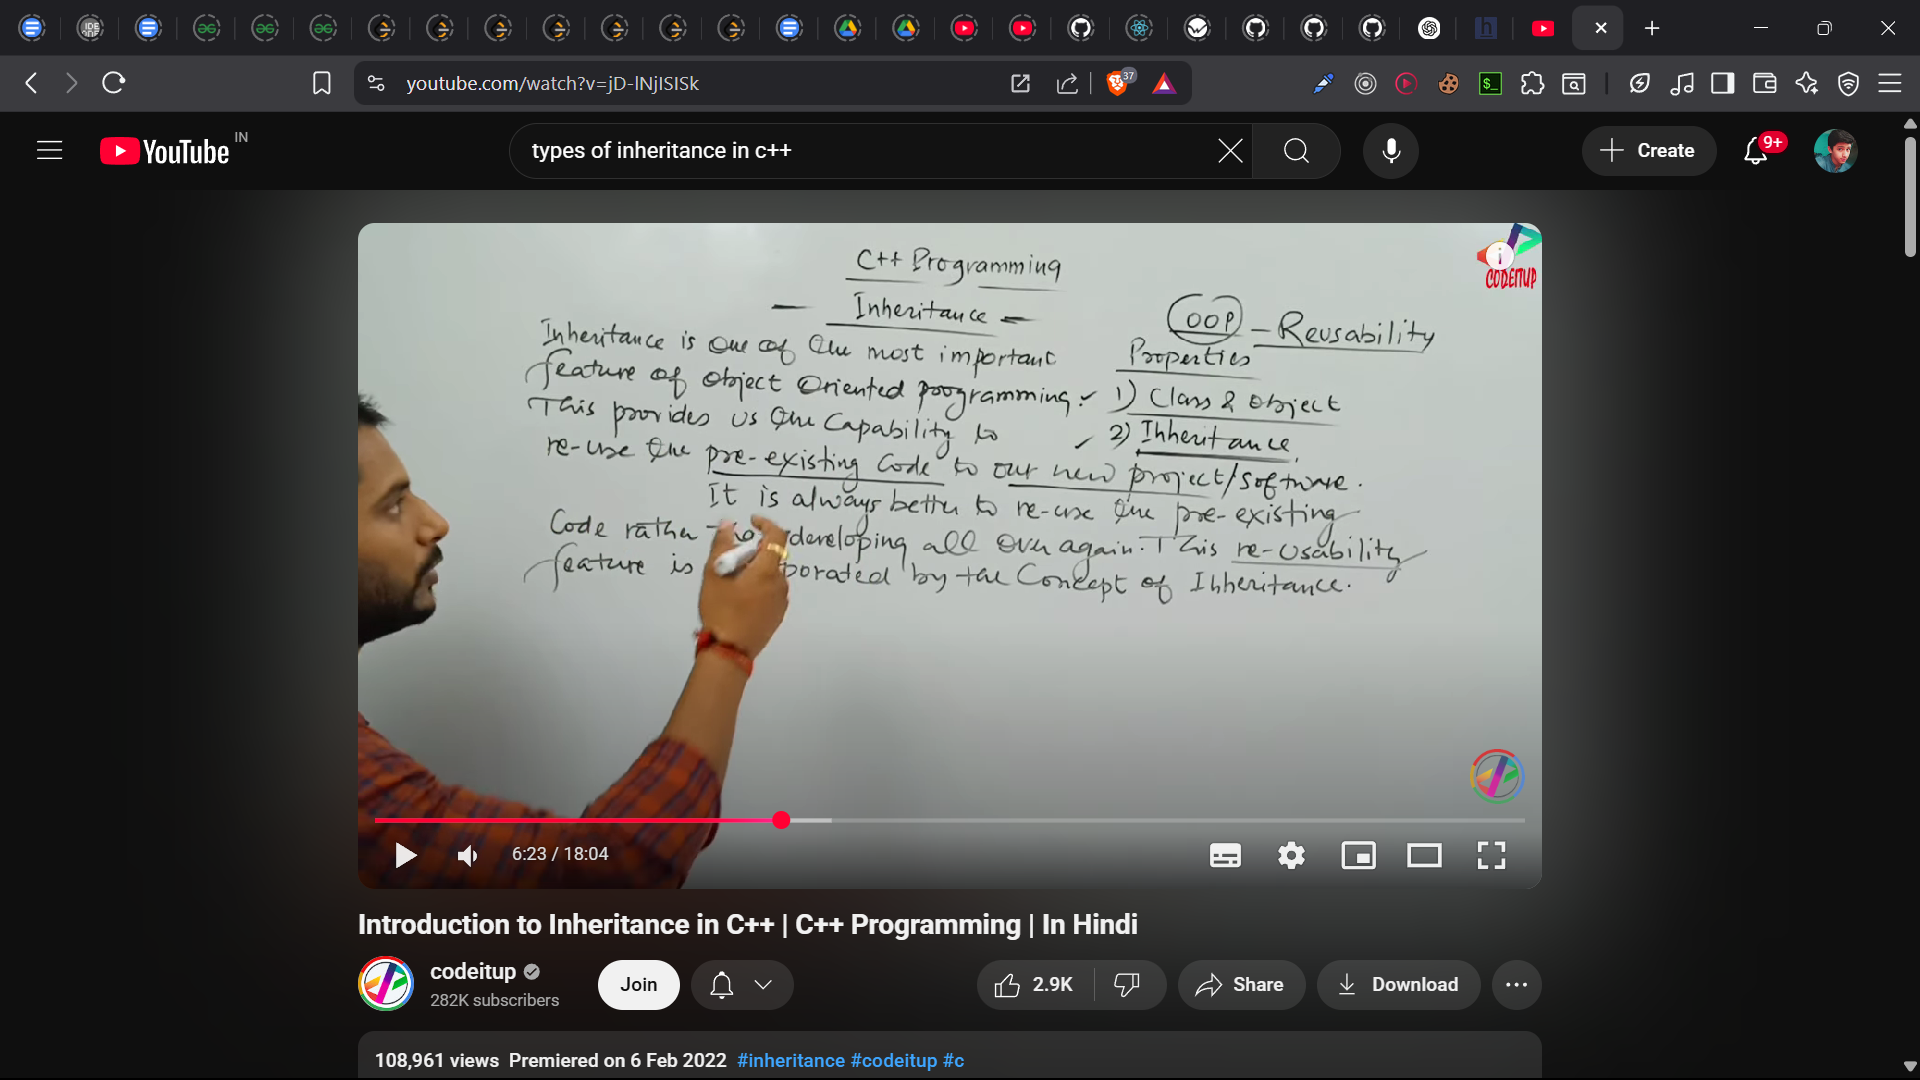 youtube.com/watch?v=jD-lNjISISk
37
YouTube IN
types of inheritance in c++
Create
9+
C++ Programming
Inheritance
CODEITUP
OOP - Reusability
Properties
1) Class & Object
2) Inheritance
Inheritance is one of the most important
feature of object oriented programming.
This provides us the capability to
re-use the pre-existing code to our new project/software.
It is always better to re-use the pre-existing
Code rather developing all over again. This re-usability
feature is by the Concept of Inheritance.
6:23 / 18:04
Introduction to Inheritance in C++ | C++ Programming | In Hindi
codeitup
282K subscribers
Join
2.9K
Share
Download
108,961 views Premiered on 6 Feb 2022 #inheritance #codeitup #c